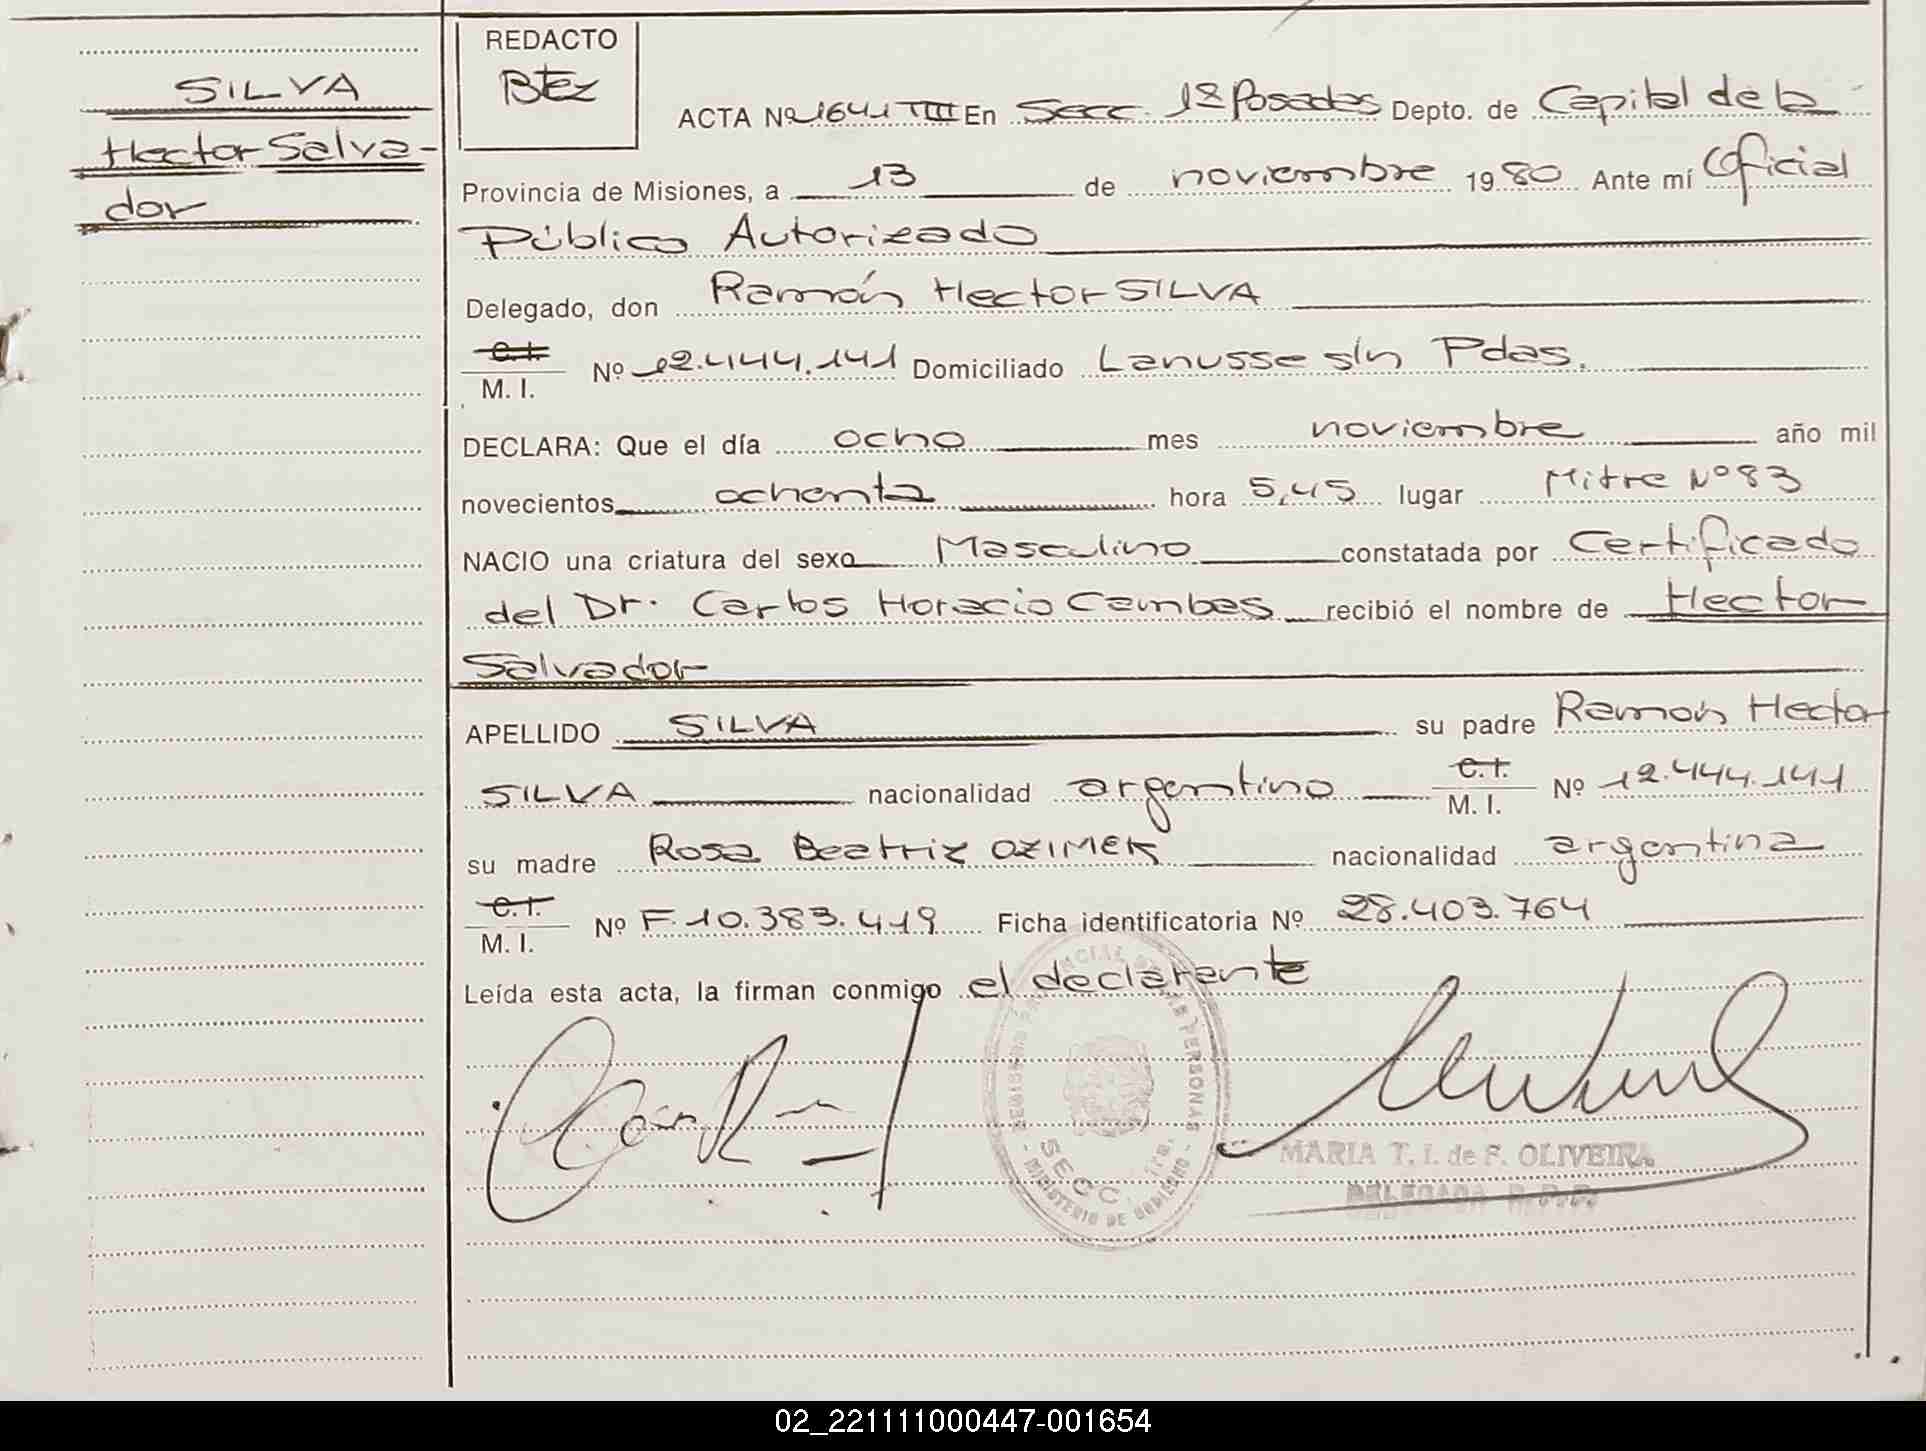 SILVA
Hector Salva-
dor
REDACTO
Btez
ACTA Nº 1641 TIII En Secc. 1ª Posadas Depto. de Capital de la
Provincia de Misiones, a 13 de noviembre 1980 Ante mí Oficial
Público Autorizado
Delegado, don Ramón Hector SILVA
C.I.
M. I. Nº 12.444.141 Domiciliado Lanusse s/n Pdas.
DECLARA: Que el día ocho mes noviembre año mil
novecientos ochenta hora 5,45 lugar Mitre Nº 83
NACIO una criatura del sexo Masculino constatada por Certificado
del Dr. Carlos Horacio Cambas recibió el nombre de Hector
Salvador
APELLIDO SILVA su padre Ramón Hector
SILVA nacionalidad argentino C.I. M. I. Nº 12.444.141
su madre Rosa Beatriz OZIMEK nacionalidad argentina
C.I.
M. I. Nº F. 10.383.419 Ficha identificatoria Nº 28.403.764
Leída esta acta, la firman conmigo el declarante
MARIA T. I. de F. OLIVEIRA
DELEGADA R.P.P.
02_221111000447-001654